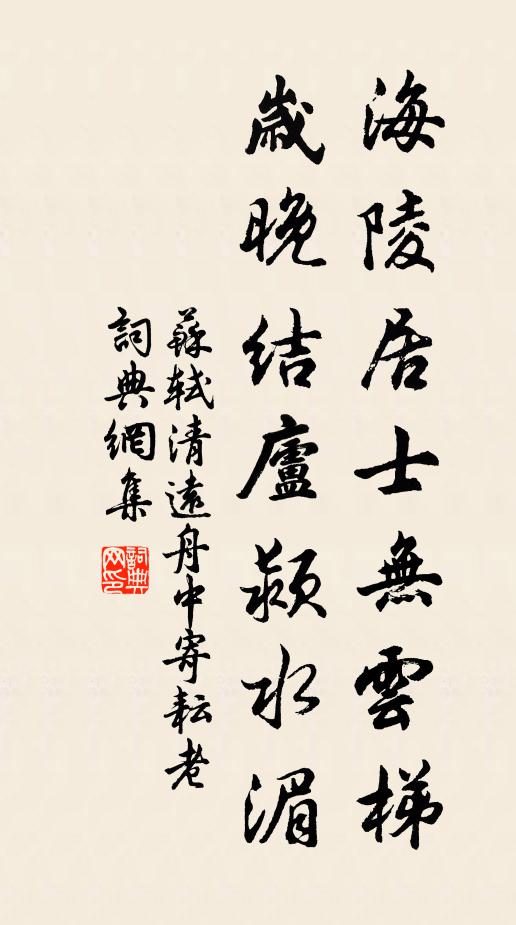 海陵居士無雲梯
歲晚結廬潁水湄
蘇軾清遠舟中寄耘老
詞典網集
詞典网印